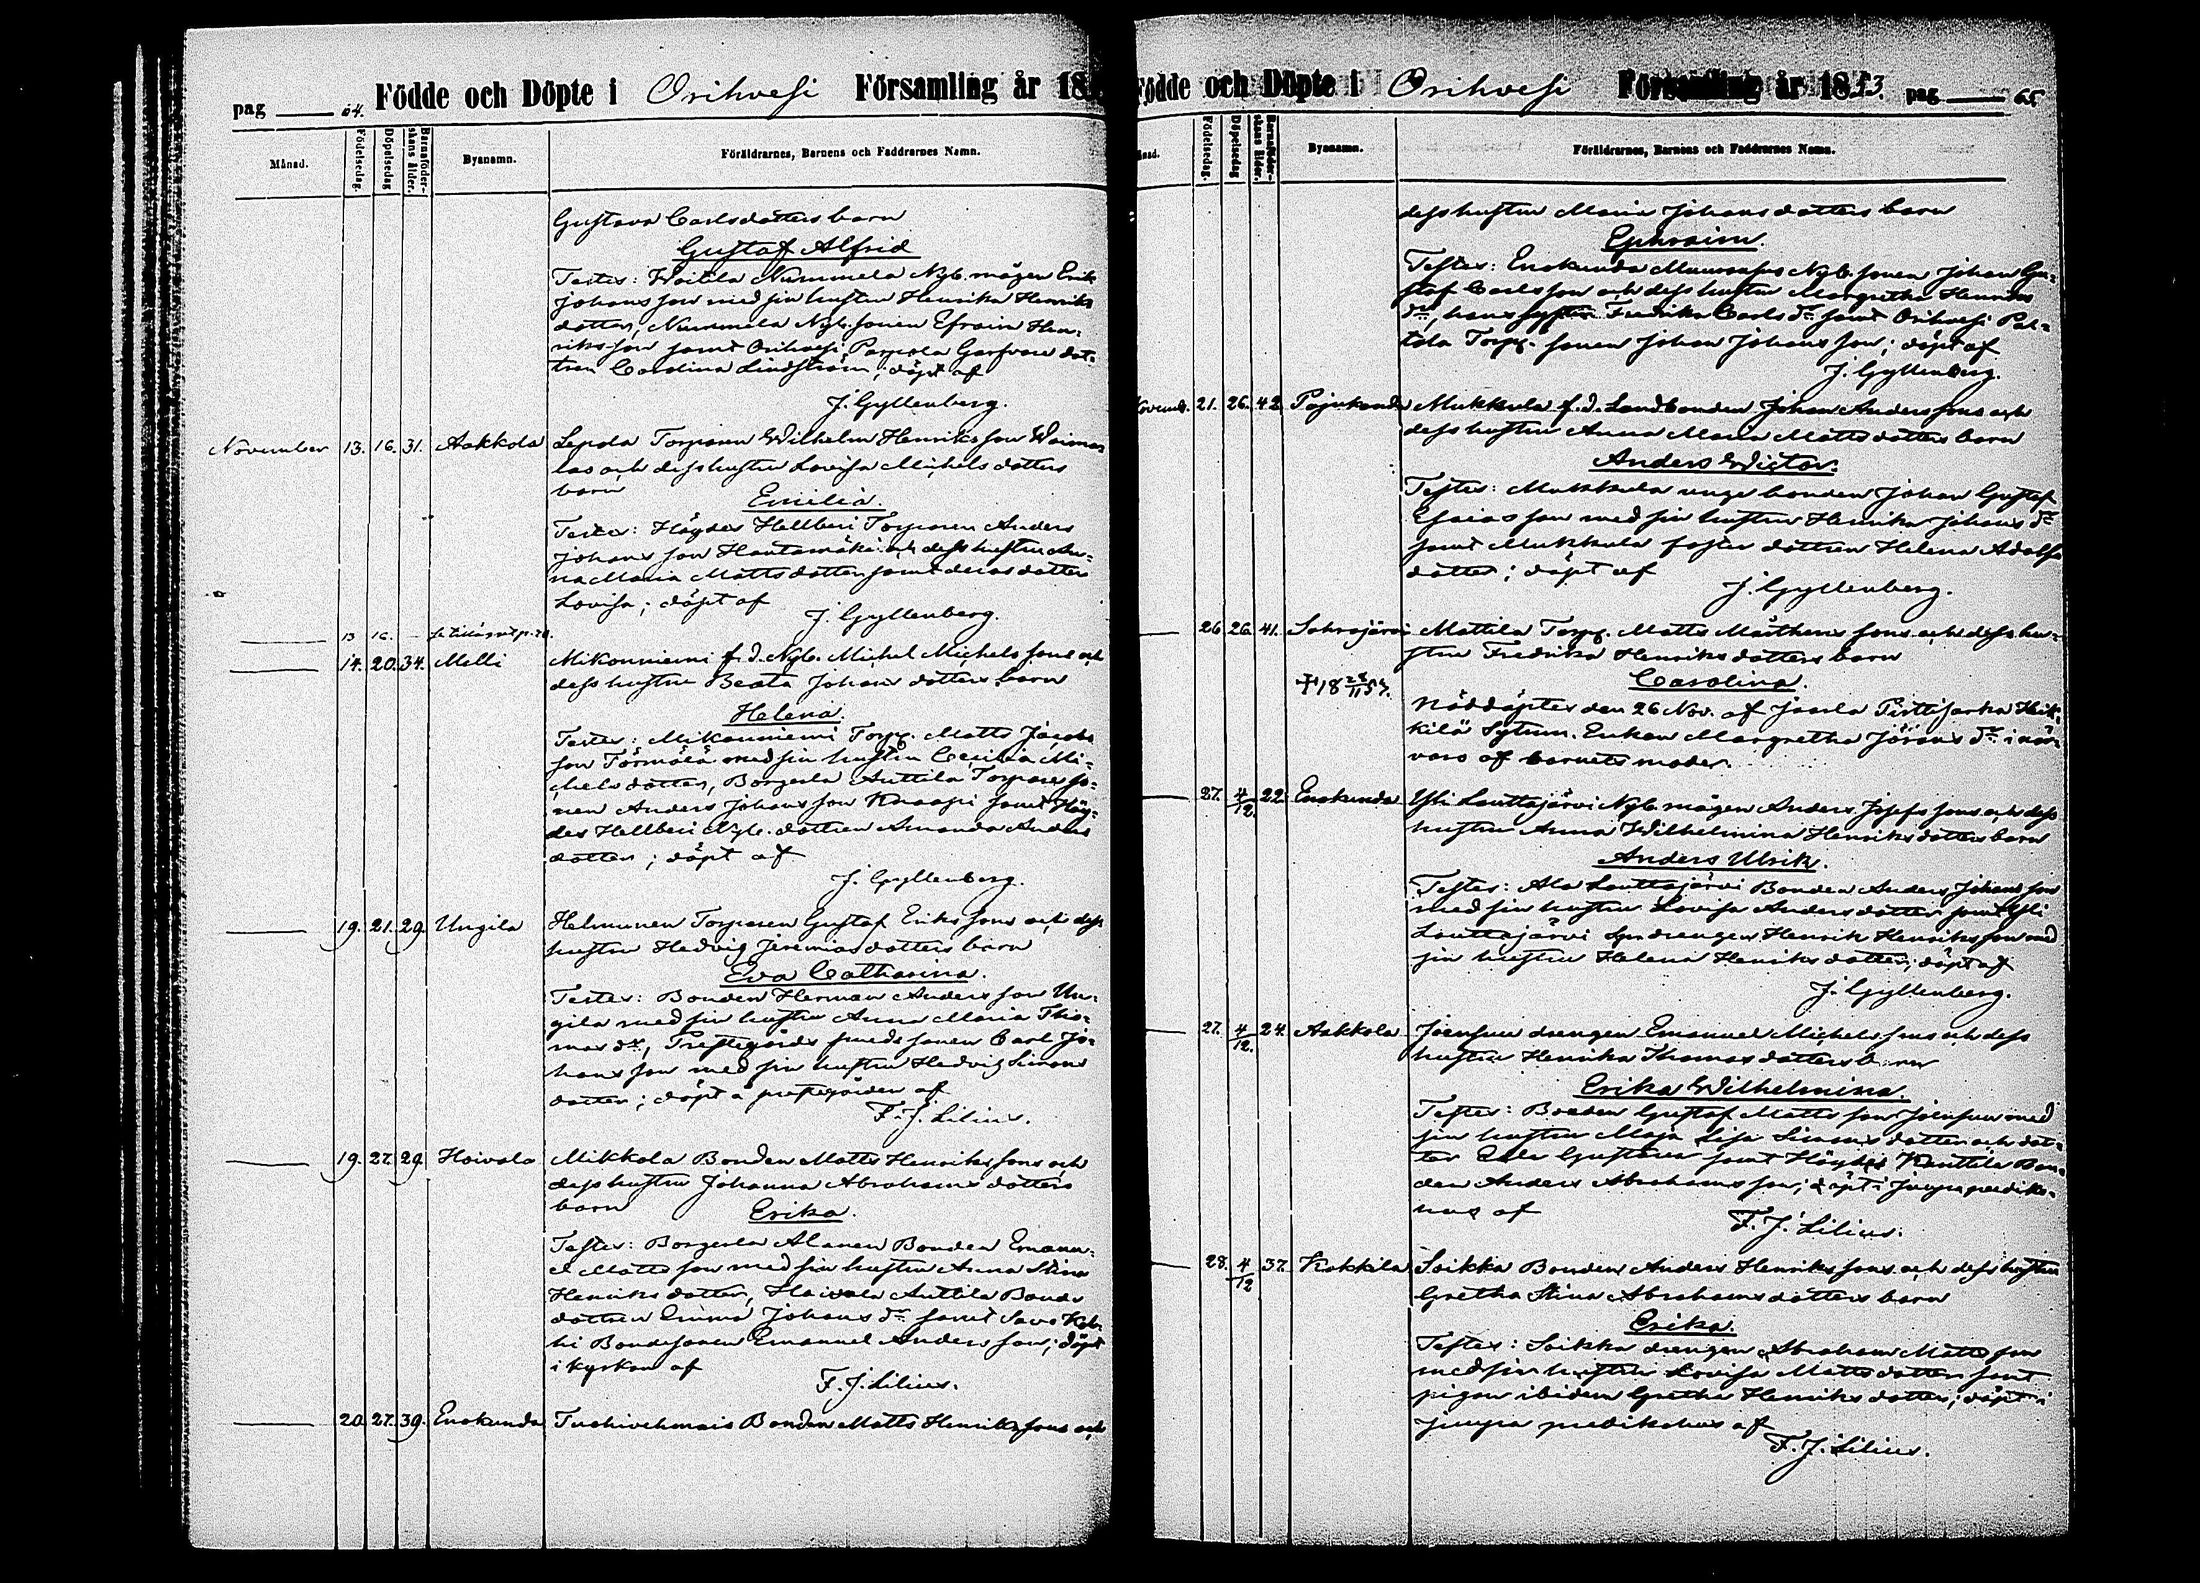 pag 64. Födde och Döpte i Orihvesi Församling år 18
Månad. Födelsedag. Döpelsedag Barnaföderskans ålder. Bynamn. Föräldrarnes, Barnens och Faddrarnes Namn.
Gustava Carlsdotters barn
Gustaf Alfrid
Testes: Woitila Nummela Nyb. mågen Erik
Johansson med sin hustru Henrika Henriks
dotter, Nummela Nyb. sonen Efraim Hen-
riksson samt Orihvesi Parpola Garfvare dot-
tren Carolina Lindström; döpt af
J. Gyllenberg.
November 13. 16. 31. Aakkola Lepola Torparen Wilhelm Henriksson
och dess hustru Lovisa Michelsdotters
barn
Emilia.
Testes: Höydes Hellberi Torparen Anders
Johansson Hautamäki och dess hustru An-
na Maria Mattsdotter samt deras dotter
Lovisa; döpt af
J. Gyllenberg.
13 16. —
14. 20. 34. Melli Mikonniemi f.d. Nyb. Michel Michelssons och
dess hustru Beata Johansdotters barn
Helena.
Testes: Mikonniemi Torp. Matts Jacobs
son Törmälä med sin hustru Cecilia Mi-
chelsdotter, Borgerla Anttila Torpare so-
nen Anders Johansson Knaapi samt Höy-
des Hellberi Nyb. dottren Amanda Anders
dotter; döpt af
J. Gyllenberg.
19. 21. 29. Ungila Helmunen Torparen Gustaf Erikssons och dess
hustru Hedvig Jeremiasdotters barn
Eva Catharina.
Testes: Bonden Herman Andersson Un-
gila med sin hustru Anna Maria Tho-
mas dr, Prestegårds smeds sonen Carl Jo-
hansson med sin hustru Hedvig Simons
dotter; döpt å prestegården af
F. J. Lilius.
19. 27. 29. Hoivala Mikkola Bonden Matts Henrikssons och
dess hustru Johanna Abrahamsdotters
barn
Erika.
Testes: Borgerla Alanen Bonden Emanu-
el Mattsson med sin hustru Anna Stina
Henriksdotter, Hoivala Anttila Bonde
dottren Emma Johans dr samt Savo Keh-
hi Bondesonen Emanuel Andersson; döpt
i kyrkan af
F. J. Lilius.
20. 27. 39. Enokunda Bonden Matts Henrikssons och
Födde och Döpte i Orihvesi Församling år 1853. pag 65
Månad. Födelsedag. Döpelsedag Barnaföderskans ålder. Bynamn. Föräldrarnes, Barnens och Faddrarnes Namn.
dess hustru Maria Johansdotters barn
Ephraim.
Testes: Enokunda Nyb. sonen Johan Gu-
staf Carlsson och dess hustru Margretha Henriks
dr, hans syster Fredrika Carls dr samt Orihvesi Pal-
tola Torp. sonen Johan Johansson; döpt af
J. Gyllenberg.
Novemb. 21. 26. 42. Pajukanda Mukkula f.d. Landbonden Johan Anderssons och
dess hustru Anna Maria Mattsdotters barn
Anders Victor.
Testes: Mukkula unge bonden Johan Gustaf
Esaiasson med sin hustru Henrika Johans dr
samt Mukkula foster dottren Helena Adolfs
dotter; döpt af
J. Gyllenberg.
26 26. 41. Sahrajärvi Mattila Torp. Matts Matthenssons och dess hu-
stru Fredrika Henriksdotters barn
Carolina.
† 18 28/11 53.
Nöddöptes den 26 Nov. af Jaarla Pirttijarka Heik-
kilä Sytun. Enkan Margretha Jörans dr i när-
varo af barnets moder.
27. 4/12 22. Enokunda Yli Lauttajärvi Nyb. mågen Anders Josefssons och dess
hustru Anna Wilhelmina Henriksdotters barn
Anders Ulrik.
Testes: Ala Lauttajärvi Bonden Anders Johansson
med sin hustru Lovisa Andersdotter samt Yli
Lauttajärvi drengen Henrik Henriksson med
sin hustru Helena Henriksdotter; döpt af
J. Gyllenberg.
27. 4/12. 24. Aakkola Joensuu drengen Emanuel Michelssons och dess
hustru Henrika Thomasdotters barn
Erika Wilhelmina.
Testes: Bonden Gustaf Mattsson Joensuu med
sin hustru Maja Lisa Simonsdotter och dot-
ter Eva Gustava samt Höydes Kanttila Bon-
den Anders Abrahamsson; döpt i Jusupa prediko-
hus af
F. J. Lilius.
28. 4/12 37. Kokkila Soikka Bonden Anders Henrikssons och dess hustru
Gretha Stina Abrahamsdotters barn
Erika.
Testes: Soikka drengen Abraham Mattsson
med sin hustru Lovisa Mattsdotter samt
pigan ibidem Gretha Henriksdotter; döpt i
predikohus af
F. J. Lilius.